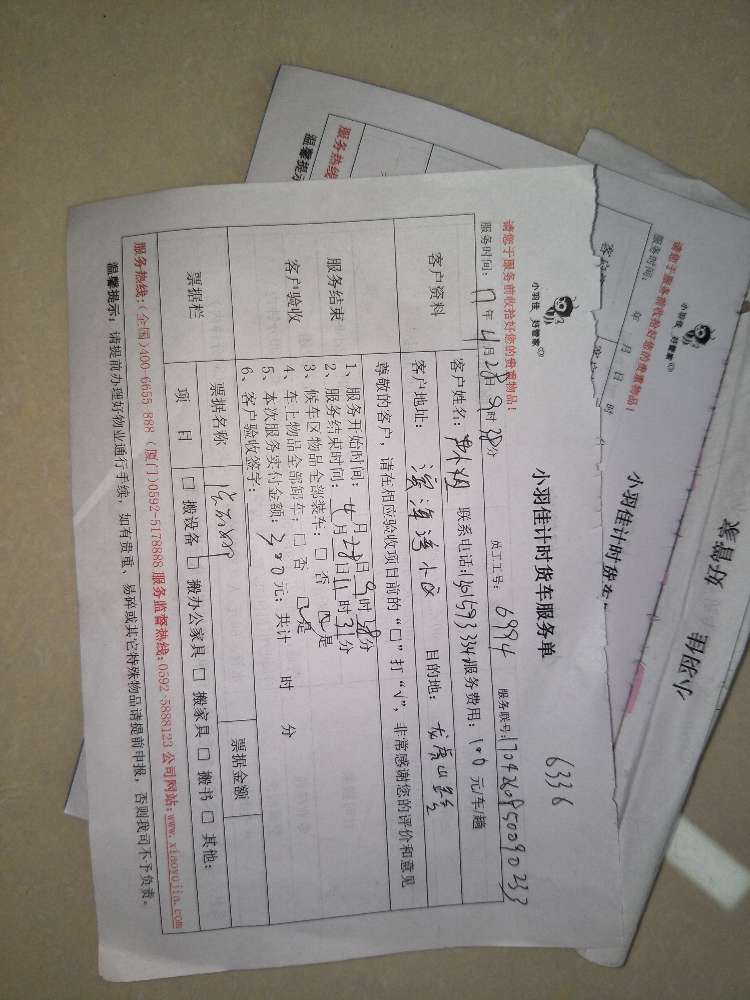 小羽佳 好管家
小羽佳计时货车服务单
6336
请您于服务前收拾好您的贵重物品！
员工工号：6994
服务时间：17年4月28日9时38分
客户资料
客户姓名：
联系电话：
服务费用：100元/车/趟
客户地址：滨海湾小区
目的地：
服务结束
客户验收
尊敬的客户，请在相应验收项目前的“口”打“√”，非常感谢您的评价和意见
1、服务开始时间：4月28日9时38分
2、服务结束时间：4月28日11时31分
3、候车区物品全部装车：□否 □是
4、车上物品全部卸车：□否 □是
5、本次服务实付金额：300元；共计 时 分
6、客户验收签字：
票据栏
票据名称
票据金额
项目
□ 搬设备 □ 搬办公家具 □ 搬家具 □ 搬书 □ 其他：
服务热线：(全国)400-6655-888 (厦门)0592-5178888 服务监督热线：0592-5888123 公司网站：www.xiaoyujia.com
温馨提示：请提前办理好物业通行手续，如有贵重、易碎或其它特殊物品请提前申报，否则我司不予负责。
服务热线
温馨提示
小羽佳 好管家
请您于服务前收拾好您的贵重物品！
服务时间： 年 月 日 时
小羽佳计时货车
好管家
小羽佳